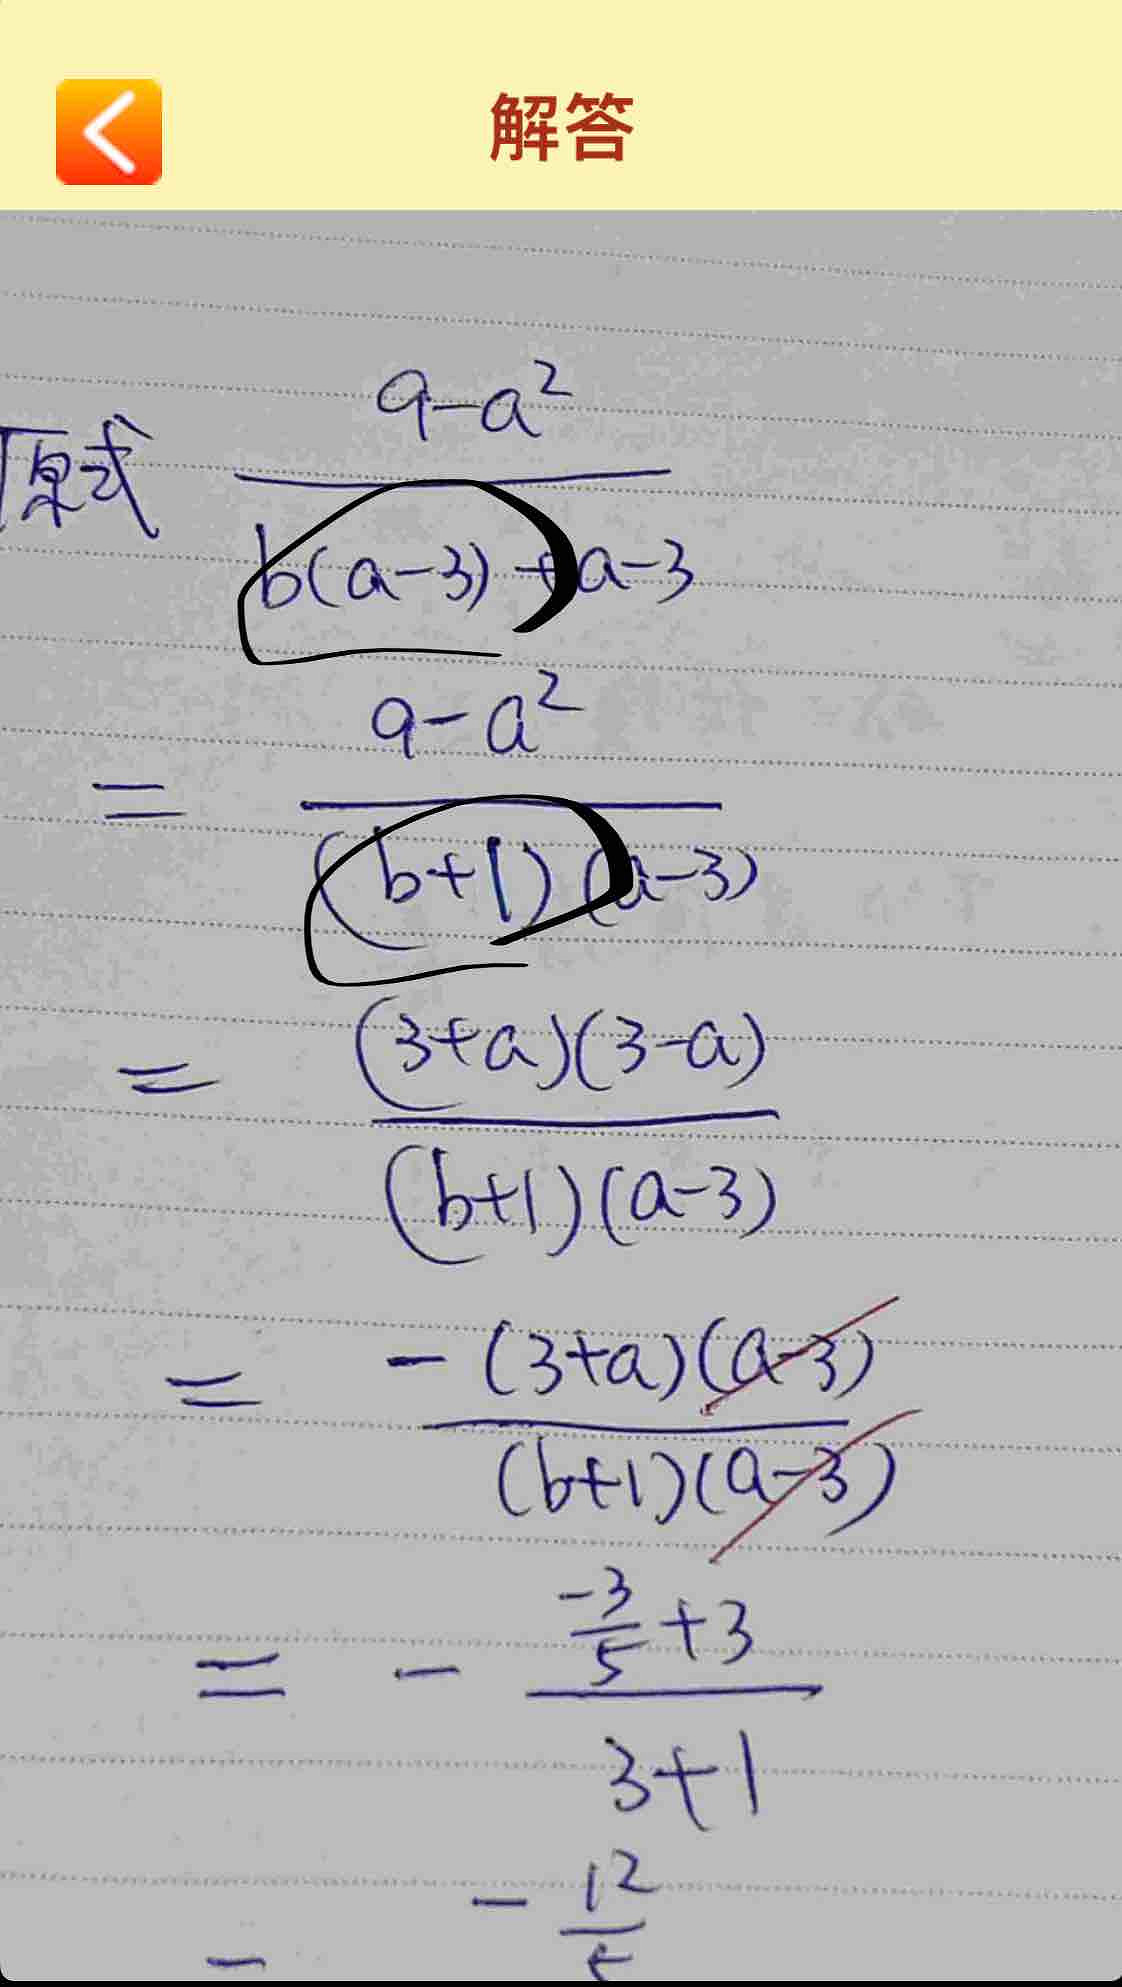 解答
原式 9-a²
b(a-3)+a-3
= 9-a²
(b+1)(a-3)
= (3+a)(3-a)
(b+1)(a-3)
= -(3+a)(a-3)
(b+1)(a-3)
= - -3/5+3
3+1
- -12/5